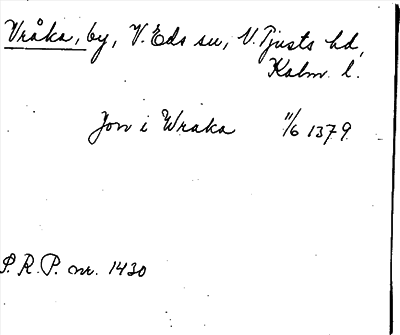 Vråka, by, V. Eds sn, N. Tjusts hd,
Kalm. l.
Jon i Wraka 11/6 1379
P.R.P. nr. 1430